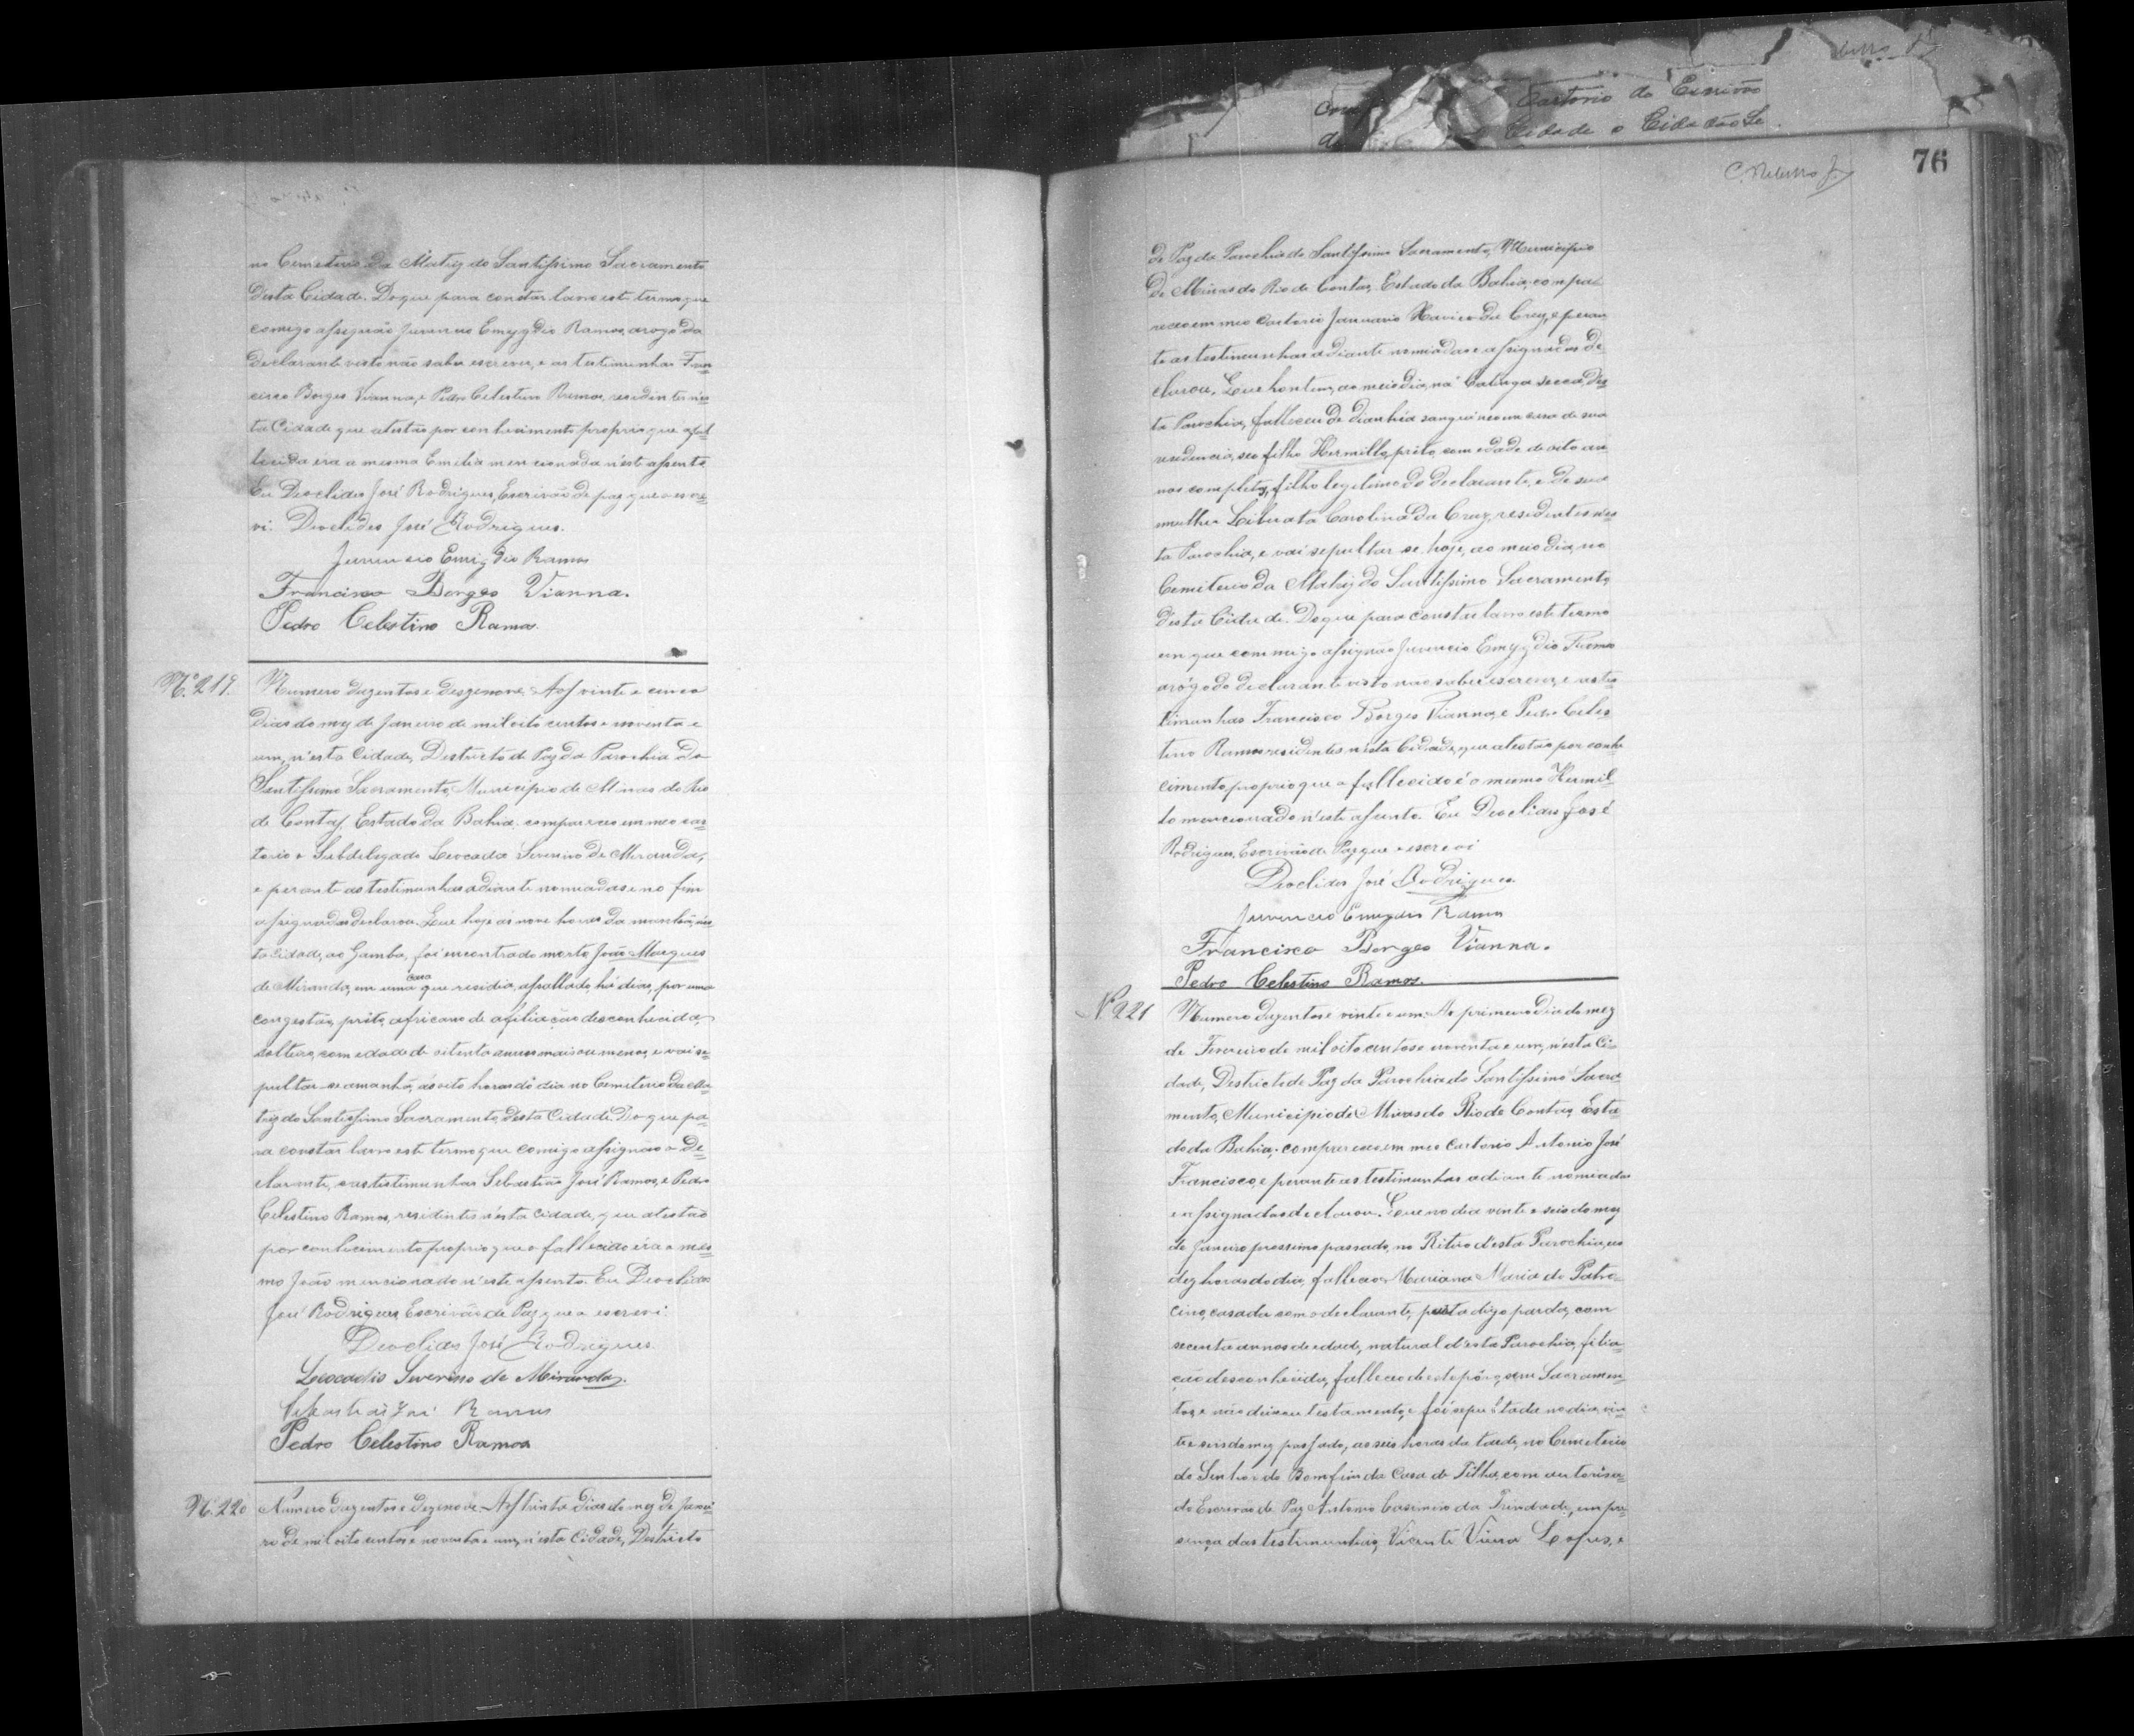 no Cemeterio da Matriz do Santissimo Sacramento
d'esta Cidade. Do que para constar lavro este termo que
comigo assignão Juvencio Emygdio Ramos, a rogo da
declarante visto não saber escrever, e as testimunhas Fran=
cisco Borges Vianna, e Pedro Celestino Ramos, residentes n'es=
ta Cidade que atestão por conhecimento proprio que a fal=
lecida era a mesma Emilia mencionada n'este assento
Eu Deoclides José Rodrigues, Escrivão de paz que o escre=
vi. Deoclides José Rodrigues.
Juvencio Emigdio Ramos
Francisco Borges Vianna.
Pedro Celestino Ramos.
Nº 219.
Numero duzentos e desgenove. Aos vinte e cinco
dias do mez de Janeiro de mil oito centos e noventa e
um, n'esta Cidade, Destricto de Paz da Parochia do
Santissimo Sacramento, Municipio de Minas do Rio
de Contas, Estado da Bahia. compareceo em meo car=
torio o Subdelegado Leocadio Severino de Miranda,
e perante as testimunhas adiante nomiadas e no fim
assignadas declarou. Que hoje as nove horas da manhã, n'es=
ta Cidade, ao Gamba, foi encontrado morto João Marques
de Miranda, em uma casa que residia, assaltado, há dias, por uma
congestão, prêto, africano de afiliação desconhecida,
solteiro, com edade de oitenta annos mais ou menos, e vai se=
pultar-se amanhã, ás oito horas do dia no Cemiterio da Ma=
triz do Santissimo Sacramento, desta Cidade. Do que pa=
ra constar lavro este termo que comigo assignão o de=
clarante, e as testimunhas Sebastião José Ramos, e Pedro
Celestino Ramos, residentes n'esta Cidade, que atestão
por conhecimento proprio que o fallecido éra o mes=
mo João mensionado n'este assento. Eu Deoclides
José Rodrigues, Escrivão de Paz que o escrevi.
Deoclides José Rodrigues.
Leocadio Severino de Miranda.
Sebastião José Ramos
Pedro Celestino Ramos
Nº 220
Numero duzentos e dezenove. Aos trinta dias do mez de Janei=
ro de mil oito centos e noventa e um, n'esta Cidade, Destricto
Cartorio do Escrivão
Cidade o Cidadão Le
76
de Paz da Parochia do Santissimo Sacramento, Municipio
de Minas do Rio de Contas, Estado da Bahia, compa=
receo em meo Cartorio Januario Xavier da Cruz, e peran
te as testimunhas adiante nomiadas e assignadas de=
clarou. Que hontem, ao meio dia, na Catinga secca, des=
ta Parochia, falleceu de diarrhéa sanguinea em casa de sua
residencia, seo filho Hermillo, prêto, com edade de oito an
nos completos, filho legitimo do declarante, e de sua
mulher Liberata Carolina da Cruz, residentes n'es=
ta Parochia, e vai sepultar-se hoje, ao meio dia, no
Cemiterio da Matriz do Santissimo Sacramento,
desta Cidade. Do que para constar lavro este termo
em que commigo assignão Juvencio Emygdio Ramos
a rôgo do declarante visto não saber escrever, e as tes=
timunhas Francisco Borges Vianna, e Pedro Celes
tino Ramos residentes n'esta Cidade, que atestão por conhe
cimento proprio que o fallecido é o mesmo Hermil=
lo mencionado n'este assento. Eu Deoclides José
Rodrigues, Escrivão de Paz que o escrevi
Deoclides José Rodrigues.
Juvencio Emygdio Ramos
Francisco Borges Vianna.
Pedro Celestino Ramos.
Nº 221
Numero duzentos e vinte e um. Ao primeiro dia do mez
de Fevereiro de mil oito centos e noventa e um, n'esta Ci=
dade, Destricto de Paz da Parochia do Santissimo Sacra=
mento, Municipio de Minas do Rio de Contas, Esta=
do da Bahia; compareceo em meo Cartorio Antonio José
Francisco, e perante as testimunhas adiante nomiadas
e assignadas declarou. Que no dia vinte e seis do mez
de Janeiro proximo passado, no Ritiro d'esta Parochia, as
dez horas do dia, falleceo Mariana Maria do Patro=
cino, casada com o declarante, preta digo parda, com
secenta annos de edade, natural d'esta Parochia, filia=
ção desconhecida, falleceo de estopôr, sem Sacramen=
tos, e não deixou testamento, e foi sepultada no dia vin=
te e seis do mez passado, as seis horas da tarde, no Cemeterio
do Senhor do Bomfim da Casa de Tilha, com autorisa=
do Escrivão de Paz Antonio Casemiro da Trindade, em pre=
sença das testimunhas, Vicente Vieira Lopes, e